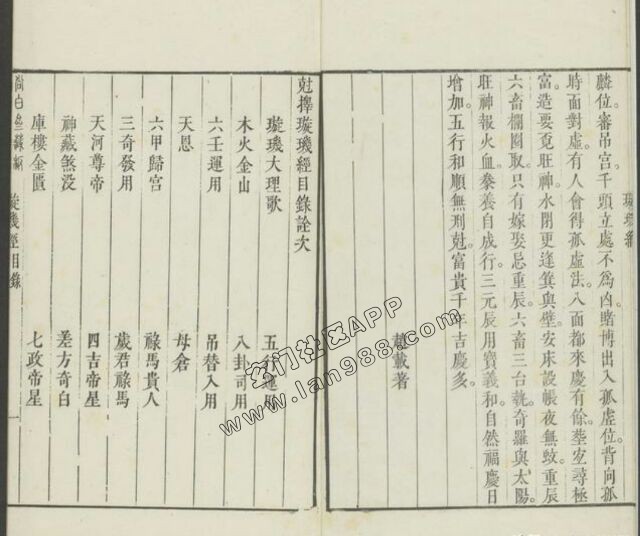 麟位。審吊宮。千頭立處不為凶。賭博出入孤虛位。背向孤
時面對虛。有人會得孤虛法。八面都來慶有餘。塟宜尋極
富。造要覓旺神。水閉更逢箕與壁。安床設帳夜無蚊。重辰
六畜欄圈取。只有嫁娶忌重辰。六畜三台竝奇羅與太陽。
旺神報火血。豢養自成行。三元辰用寶義和。自然福慶日
增加。五行和順無刑尅。富貴千年吉慶多。
趙載著
尅擇璇璣經目錄詮次
璇璣大理歌 五行運用
木火金山 八卦司用
六壬運用 吊替入用
天恩 母倉
六甲歸宮 祿馬貴人
三奇發用 歲君祿馬
天河尊帝 四吉帝星
神藏煞沒 差方奇白
庫樓金匱 七政帝星
璇璣經目錄
一
玄门社区APP
www.lan988.com